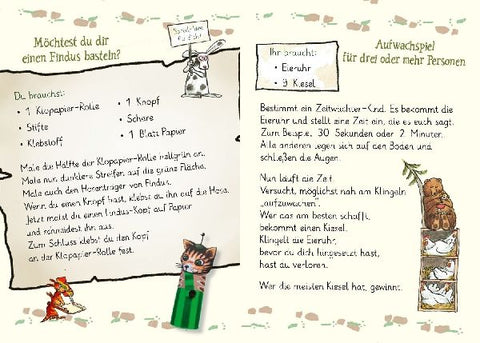 Möchtest du dir
einen Findus basteln?
Du brauchst:
• 1 Klopapier-Rolle
• Stifte
• Klebstoff
• 1 Knopf
• Schere
• 1 Blatt Papier
Male die Hälfte der Klopapier-Rolle hellgrün an.
Male nun dunklere Streifen auf die grüne Fläche.
Male auch den Hosenträger von Findus.
Wenn du einen Knopf hast, klebst du ihn auf die Hose.
Jetzt malst du einen Findus-Kopf auf Papier
und schneidest ihn aus.
Zum Schluss klebst du den Kopf
an der Klopapier-Rolle fest.
Aufwachspiel
für drei oder mehr Personen
Ihr braucht:
• Eieruhr
• 9 Kiesel
Bestimmt ein Zeitwächter-Kind. Es bekommt die
Eieruhr und stellt eine Zeit ein, die es euch sagt.
Zum Beispiel 30 Sekunden oder 2 Minuten.
Alle anderen legen sich auf den Boden und
schließen die Augen.
Nun läuft die Zeit.
Versucht, möglichst nah am Klingeln
„aufzuwachen“.
Wer das am besten schafft,
bekommt einen Kiesel.
Klingelt die Eieruhr,
bevor du dich hingesetzt hast,
hast du verloren.
Wer die meisten Kiesel hat, gewinnt.